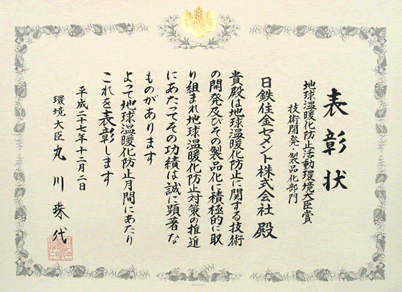 表彰状
地球温暖化防止活動環境大臣賞
技術開発・製品化部門
日鉄住金セメント株式会社 殿
貴殿は地球温暖化防止に関する技術
の開発及びその製品化に積極的に取
り組まれ地球温暖化防止対策の推進
にあたってその功績は誠に顕著な
ものがあります
よって地球温暖化防止月間にあたり
これを表彰します
平成二十七年十二月二日
環境大臣 丸川珠代